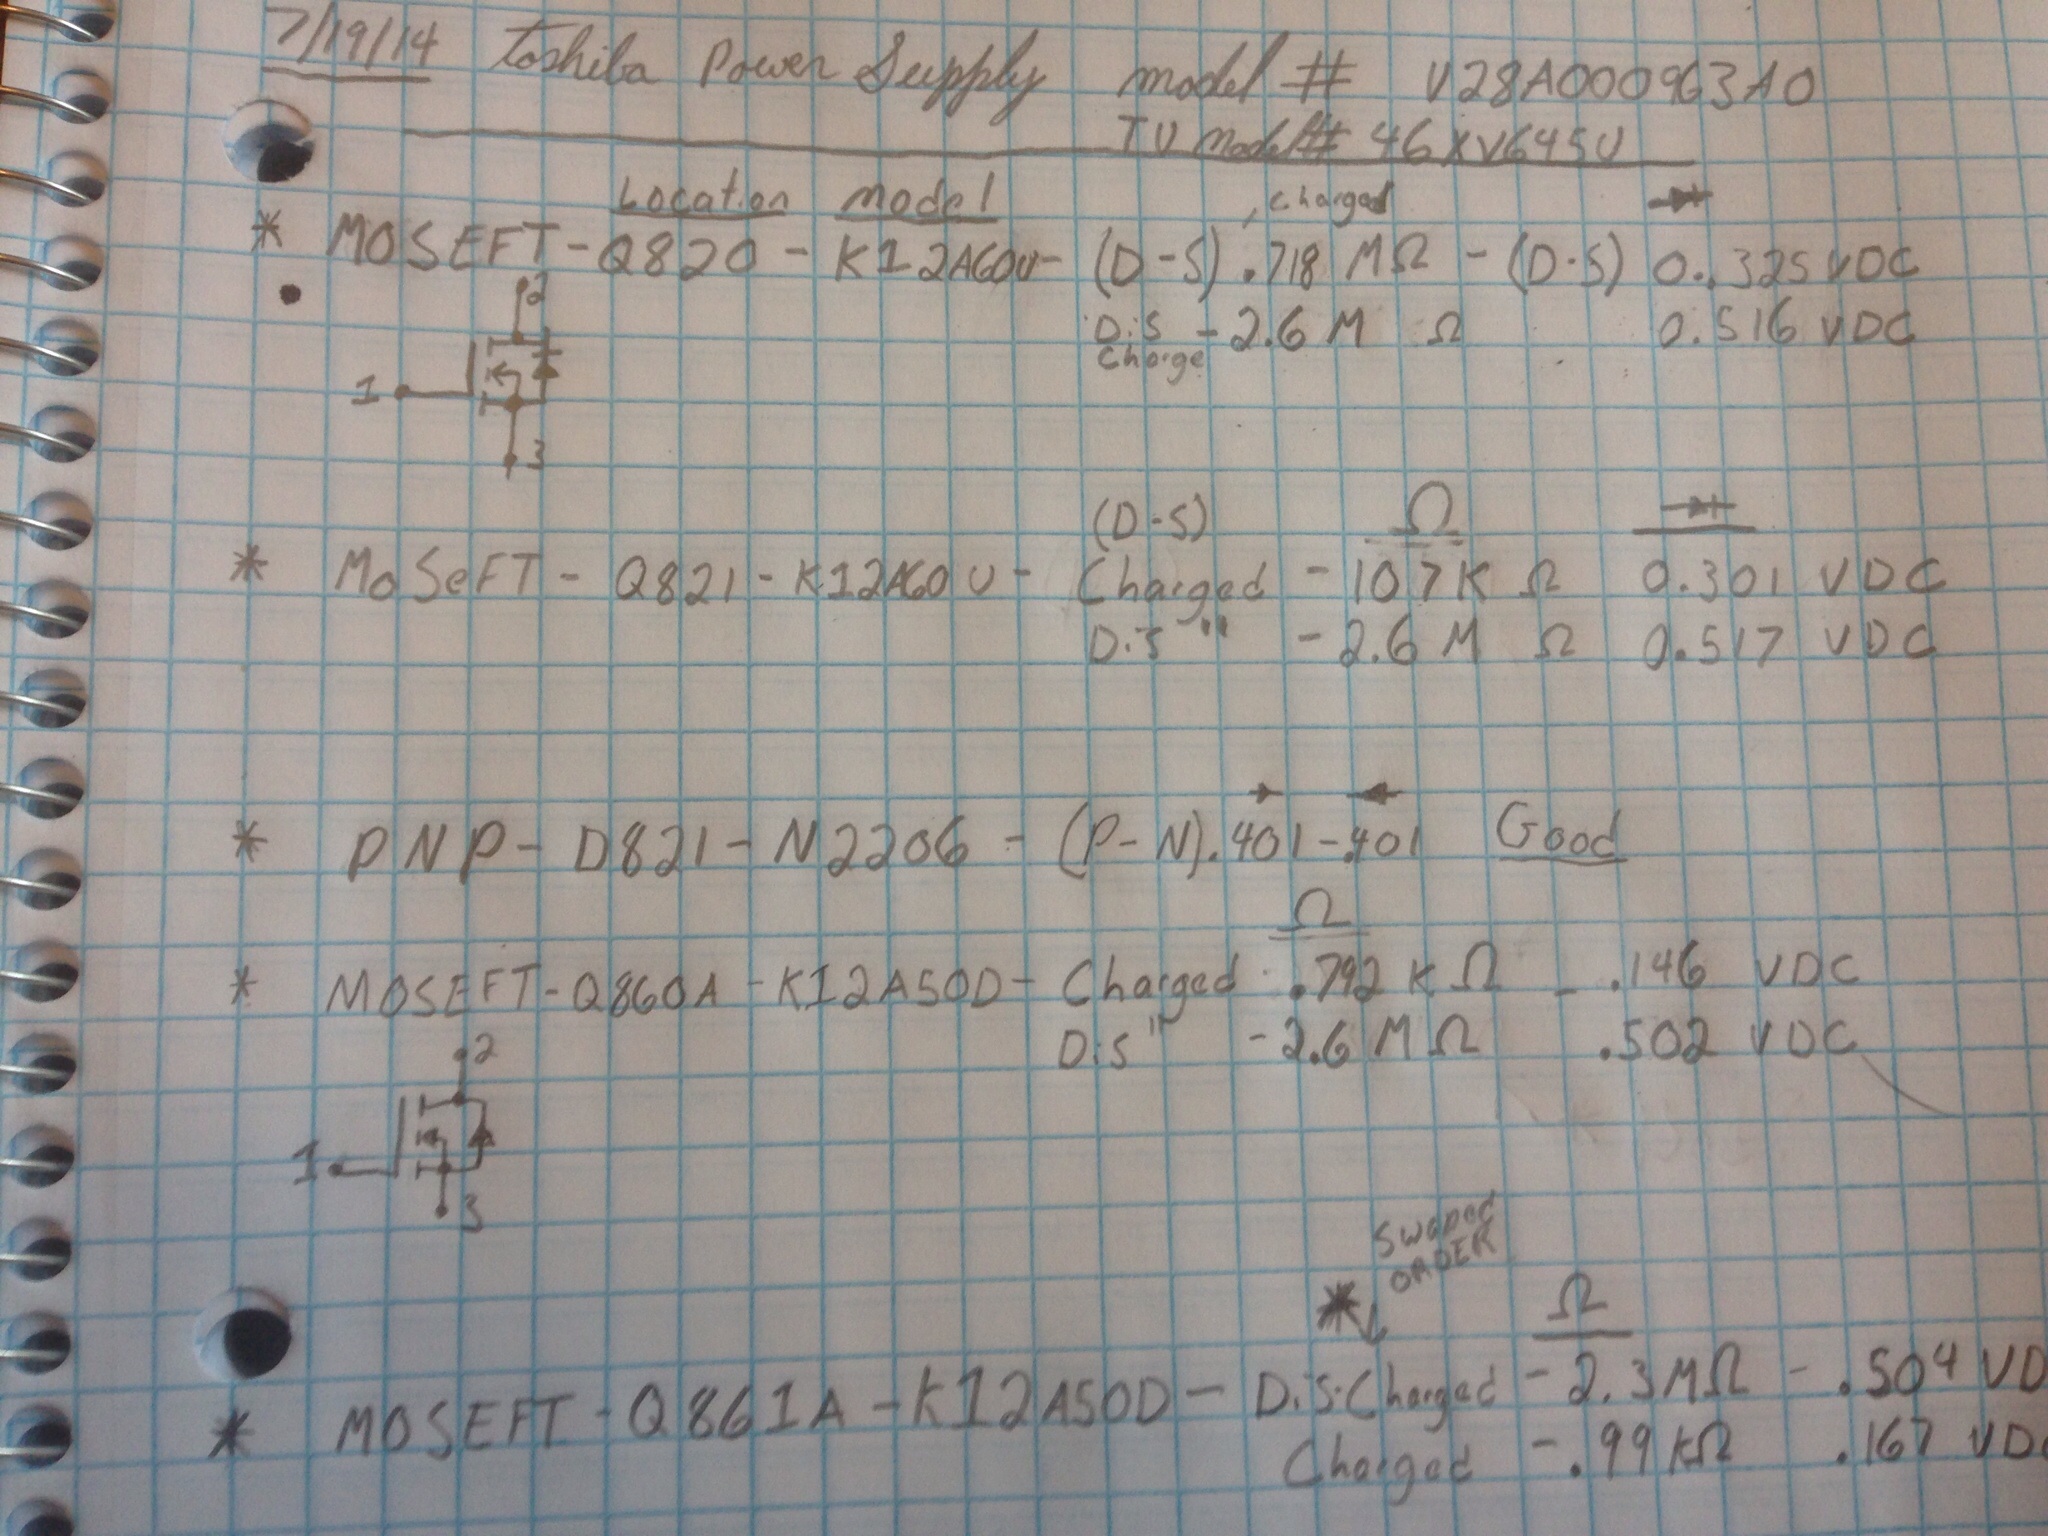 7/19/14 Toshiba Power Supply model # V28A000963A0
TV Model# 46XV645U
Location model , charged
* MOSEFT-Q820 - K12A60U- (D-S) .718 MΩ - (D-S) 0.325 VDC
Dis Charge - 2.6 M Ω 0.516 VDC
2
1
3
(D-S) Ω
* MoSeFT - Q821 - K12A60U - Charged - 107K Ω 0.301 VDC
Dis " - 2.6 M Ω 0.517 VDC
* PNP - D821 - N2206 - (P-N) .401 - .401 Good
Ω
* MOSEFT-Q860A - K12A50D - Charged .792 K Ω - .146 VDC
Dis " - 2.6 M Ω .502 VDC
2
1
3
Swaped
ORDER
* Ω
* MOSEFT - Q861A - K12A50D - DisCharged - 2.3MΩ - .504 VD
Charged - .99 KΩ .167 VDC